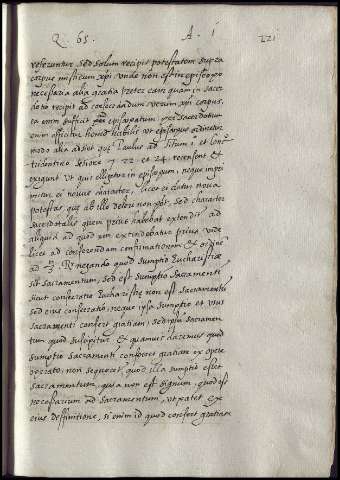 Q. 65. A. 1 221
referuntur sed solum recipit potestatem supra
corpus misticum xpi unde non est in episcopo
necessaria alia gratia preter eam quam in sacer
dotio recipit ad conserandum verum xpi corpus,
ea enim sufficit episcopatum, per sacerdotium
enim efficitur homo habilis ut episcopus ordinetur
modo alia adsint que Paulus ad Titum 1. et Con
tridentino sessione 7 22 et 24. recensent et
exigunt ut quis eligatur in episcopum, neque impri
mitur ei novus character, licet ei datur nova
potestas, que ab illo deleri non pot, sed character
sacerdotalis quem prius habebat extendit ad
aliquid ad quod non extendebatur prius unde
licet ad conferendam confirmationem et ordine
ad 3 negando quod sumptio Eucharistiae
sit sacramentum, sed est sumptio sacramenti
sicut consecratio Eucharistie non est sacramentum
sed eius consecratio, neque ipsa sumptio et usus
sacramenti confert gratiam, sed ipsum sacramen
tum quod suscipitur et quamvis daremus quod
sumptio sacramenti conferret gratiam ex opere
operato, non sequeret quod illa sumptio esset
sacramentum, quia non est signum, quod est
necessarium ad sacramentum, ut patet ex
eius deffinitione, si enim id quod confert gratiam